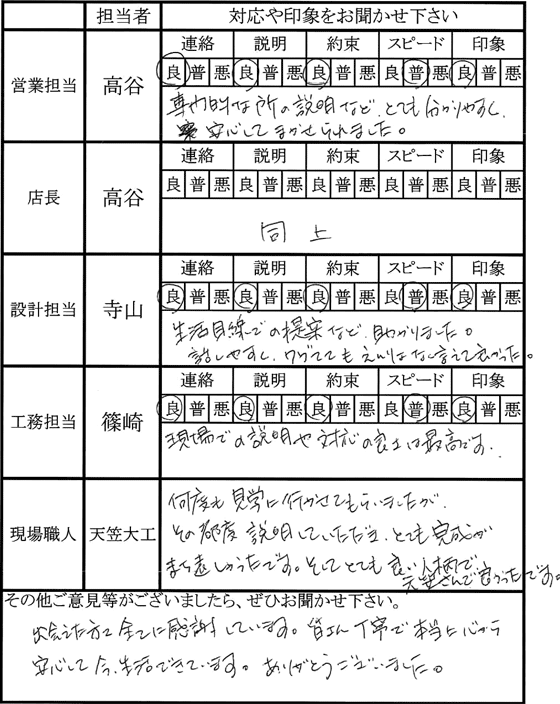 担当者 対応や印象をお聞かせ下さい
連絡 説明 約束 スピード 印象
営業担当 高谷 良 普 悪 良 普 悪 良 普 悪 良 普 悪 良 普 悪
専門的な所の説明など、とても分かりやすく、
安心してまかせられました。
連絡 説明 約束 スピード 印象
店長 高谷 良 普 悪 良 普 悪 良 普 悪 良 普 悪 良 普 悪
同 上
連絡 説明 約束 スピード 印象
設計担当 寺山 良 普 悪 良 普 悪 良 普 悪 良 普 悪 良 普 悪
生活目線での提案など、助かりました。
話しやすく、
言えて良かった。
連絡 説明 約束 スピード 印象
工務担当 篠崎 良 普 悪 良 普 悪 良 普 悪 良 普 悪 良 普 悪
現場での説明や対応の良さは最高です。
現場職人 天笠大工
何度も見学に行かせてもらいましたが、
その都度説明していただき、とても完成が
まち遠しかったです。そしてとても良い人柄で
天笠さんで良かったです。
その他ご意見等がございましたら、ぜひお聞かせ下さい。
出会えた方々全てに感謝しています。皆さん丁寧で本当に心から
安心して今、生活できています。ありがとうございました。